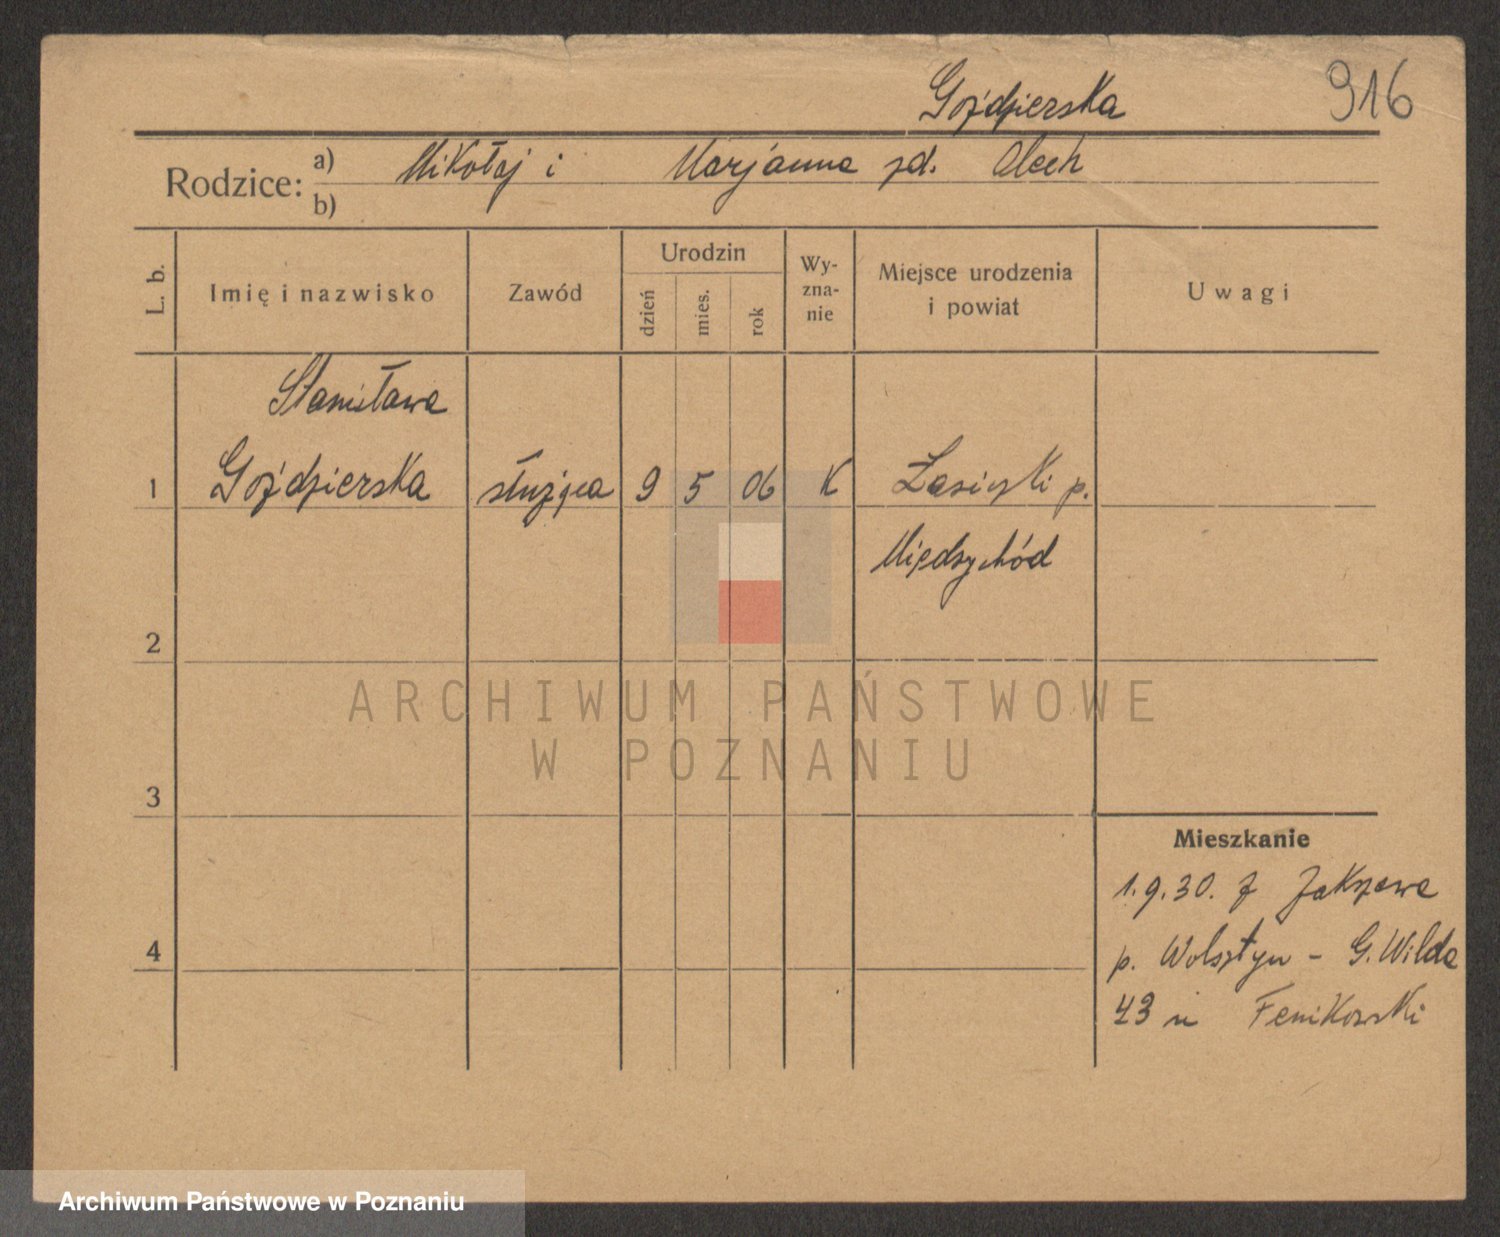 Goździerska 916
Rodzice: a) Mikołaj i Marjanna zd. Olech
b)
L. b. Imię i nazwisko Zawód Urodzin dzień mies. rok Wy-zna-nie Miejsce urodzenia i powiat Uwagi
Stanisława
1 Goździerska służąca 9 5 06 K p.
Międzychód
2
ARCHIWUM PAŃSTWOWE
W POZNANIU
3
Mieszkanie
1.9.30. z
4
p. Wolsztyn - G. Wilda
43 u Fenikowski
Archiwum Państwowe w Poznaniu